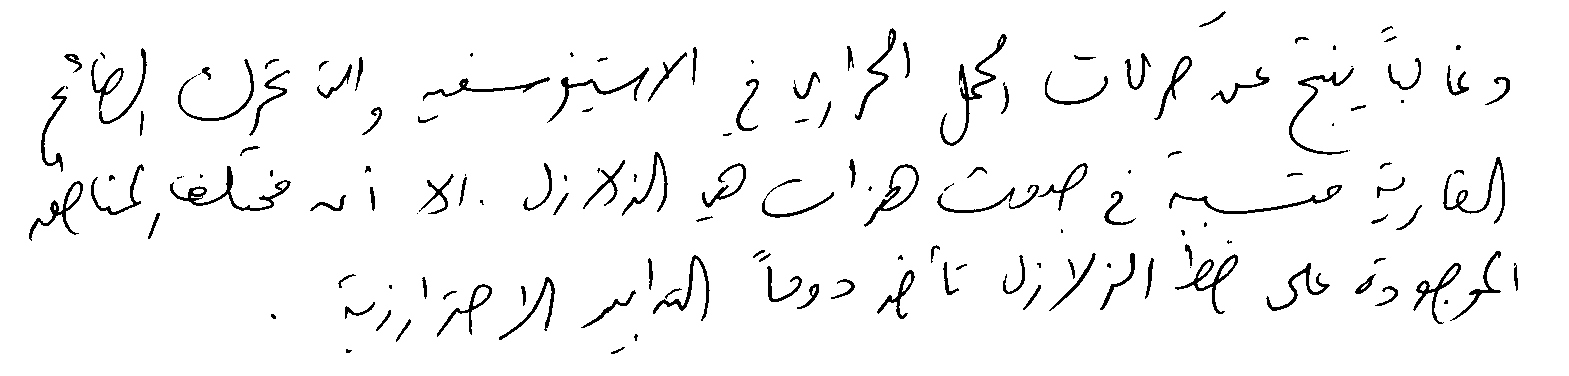 وغالباً ينتج عن حركات الحمل الحراري في الاستينوسفير والتي تحرك الصفائح
القارية متسببة في حدوث هزات هي الزلازل . الا أن مختلف المناطق
الموجودة على خط الزلازل تأخذ دوماً التدابير الاحترازية .